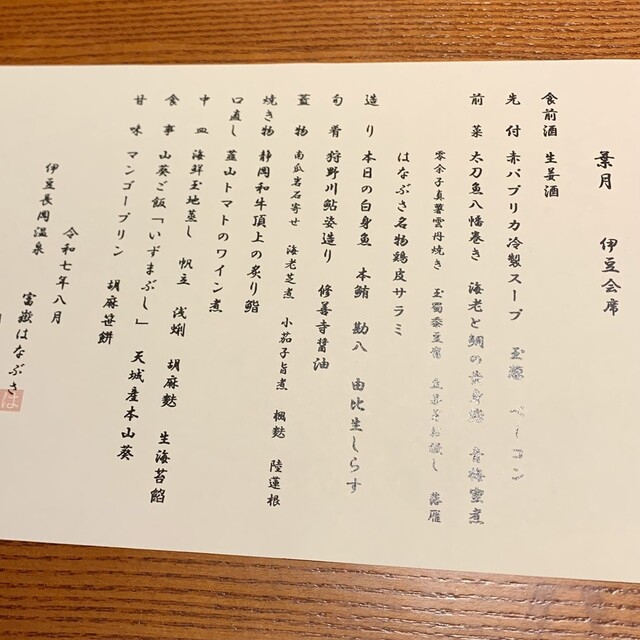 葉月　伊豆会席
食前酒　生姜酒
先付　赤パプリカ冷製スープ　玉葱　ベーコン
前菜　太刀魚八幡巻き　海老と鯛の黄身焼　青梅蜜煮
零余子真薯雲丹焼き　玉蜀黍豆腐　落雁
はなぶさ名物鶏皮サラミ
造り　本日の白身魚　本鮪　勘八　由比生しらす
旬肴　狩野川鮎姿造り　修善寺醤油
蓋物　南瓜岩石寄せ　海老芝煮　小茄子旨煮　楓麩　陸蓮根
焼き物　静岡和牛頂上の炙り鮨
口直し　韮山トマトのワイン煮
中皿　海鮮玉地蒸し　帆立　浅蜊　胡麻麩　生海苔餡
食事　山葵ご飯「いずまぶし」　天城産本山葵
甘味　マンゴープリン　胡麻笹餅
令和七年八月
伊豆長岡温泉
富嶽はなぶさ
は